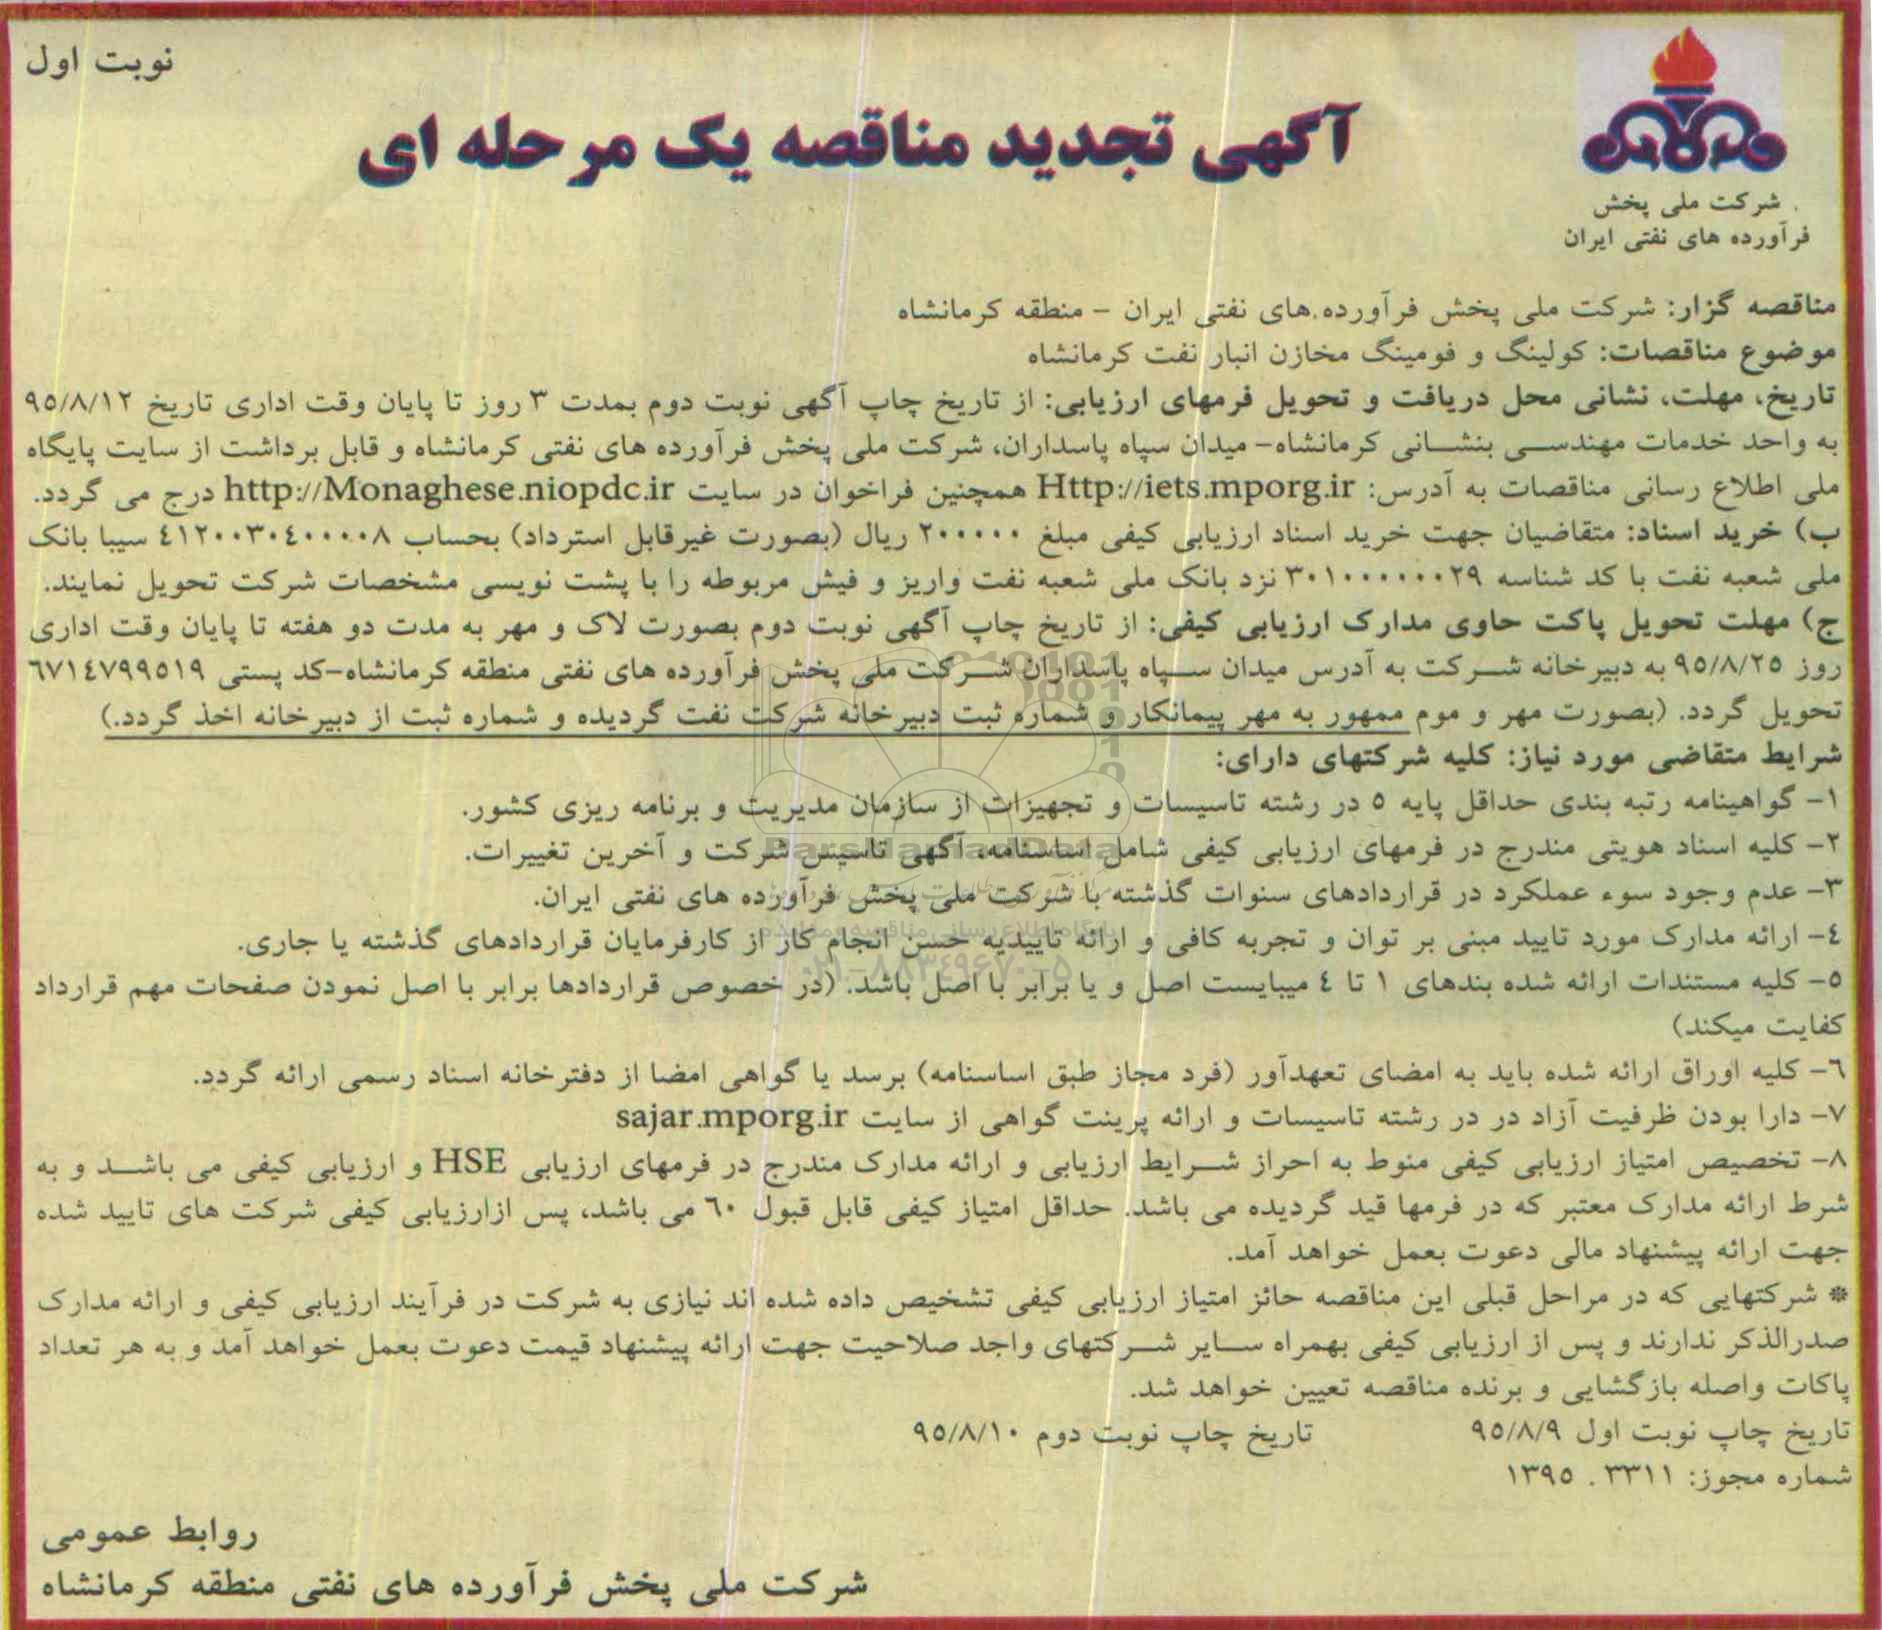 نوبت اول
آگهی تجدید مناقصه یک مرحله ای
شرکت ملی پخش
فرآورده های نفتی ایران
مناقصه گزار: شرکت ملی پخش فرآورده های نفتی ایران - منطقه کرمانشاه
موضوع مناقصات: کولینگ و فومینگ مخازن انبار نفت کرمانشاه
تاریخ، مهلت، نشانی محل دریافت و تحویل فرمهای ارزیابی: از تاریخ چاپ آگهی نوبت دوم بمدت ۳ روز تا پایان وقت اداری تاریخ ۹۵/۸/۱۲
به واحد خدمات مهندسی بنشانی کرمانشاه- میدان سپاه پاسداران، شرکت ملی پخش فرآورده های نفتی کرمانشاه و قابل برداشت از سایت پایگاه
ملی اطلاع رسانی مناقصات به آدرس: Http://iets.mporg.ir همچنین فراخوان در سایت http://Monaghese.niopdc.ir درج می گردد.
ب) خرید اسناد: متقاضیان جهت خرید اسناد ارزیابی کیفی مبلغ ۲۰۰۰۰۰ ریال (بصورت غیرقابل استرداد) بحساب ۴۱۲۰۰۳۰۴۰۰۰۰۸ سیبا بانک
ملی شعبه نفت با کد شناسه ۳۰۱۰۰۰۰۰۰۲۹ نزد بانک ملی شعبه نفت واریز و فیش مربوطه را با پشت نویسی مشخصات شرکت تحویل نمایند.
ج) مهلت تحویل پاکت حاوی مدارک ارزیابی کیفی: از تاریخ چاپ آگهی نوبت دوم بصورت لاک و مهر به مدت دو هفته تا پایان وقت اداری
روز ۹۵/۸/۲۵ به دبیرخانه شرکت به آدرس میدان سپاه پاسداران شرکت ملی پخش فرآورده های نفتی منطقه کرمانشاه-کد پستی ۶۷۱۴۷۹۹۵۱۹
تحویل گردد. (بصورت مهر و موم ممهور به مهر پیمانکار و شماره ثبت دبیرخانه شرکت نفت گردیده و شماره ثبت از دبیرخانه اخذ گردد.)
شرایط متقاضی مورد نیاز: کلیه شرکتهای دارای:
۱- گواهینامه رتبه بندی حداقل پایه ۵ در رشته تاسیسات و تجهیزات از سازمان مدیریت و برنامه ریزی کشور.
۲- کلیه اسناد هویتی مندرج در فرمهای ارزیابی کیفی شامل اساسنامه، آگهی تاسیس شرکت و آخرین تغییرات.
ParsNamadData
۳- عدم وجود سوء عملکرد در قراردادهای سنوات گذشته با شرکت ملی پخش فرآورده های نفتی ایران.
پایگاه اطلاع رسانی مناقصه و مزایده
۴- ارائه مدارک مورد تایید مبنی بر توان و تجربه کافی و ارائه تاییدیه حسن انجام کار از کارفرمایان قراردادهای گذشته یا جاری.
۰۲۱-۸۸۳۴۹۶۷۰-۵
۵- کلیه مستندات ارائه شده بندهای ۱ تا ۴ میبایست اصل و یا برابر با اصل باشد. (در خصوص قراردادها برابر با اصل نمودن صفحات مهم قرارداد
کفایت میکند)
۶- کلیه اوراق ارائه شده باید به امضای تعهدآور (فرد مجاز طبق اساسنامه) برسد یا گواهی امضا از دفترخانه اسناد رسمی ارائه گردد.
۷- دارا بودن ظرفیت آزاد در در رشته تاسیسات و ارائه پرینت گواهی از سایت sajar.mporg.ir
۸- تخصیص امتیاز ارزیابی کیفی منوط به احراز شرایط ارزیابی و ارائه مدارک مندرج در فرمهای ارزیابی HSE و ارزیابی کیفی می باشد و به
شرط ارائه مدارک معتبر که در فرمها قید گردیده می باشد. حداقل امتیاز کیفی قابل قبول ۶۰ می باشد، پس ازارزیابی کیفی شرکت های تایید شده
جهت ارائه پیشنهاد مالی دعوت بعمل خواهد آمد.
* شرکتهایی که در مراحل قبلی این مناقصه حائز امتیاز ارزیابی کیفی تشخیص داده شده اند نیازی به شرکت در فرآیند ارزیابی کیفی و ارائه مدارک
صدرالذکر ندارند و پس از ارزیابی کیفی بهمراه سایر شرکتهای واجد صلاحیت جهت ارائه پیشنهاد قیمت دعوت بعمل خواهد آمد و به هر تعداد
پاکات واصله بازگشایی و برنده مناقصه تعیین خواهد شد.
تاریخ چاپ نوبت اول ۹۵/۸/۹ تاریخ چاپ نوبت دوم ۹۵/۸/۱۰
شماره مجوز: ۳۳۱۱ . ۱۳۹۵
روابط عمومی
شرکت ملی پخش فرآورده های نفتی منطقه کرمانشاه